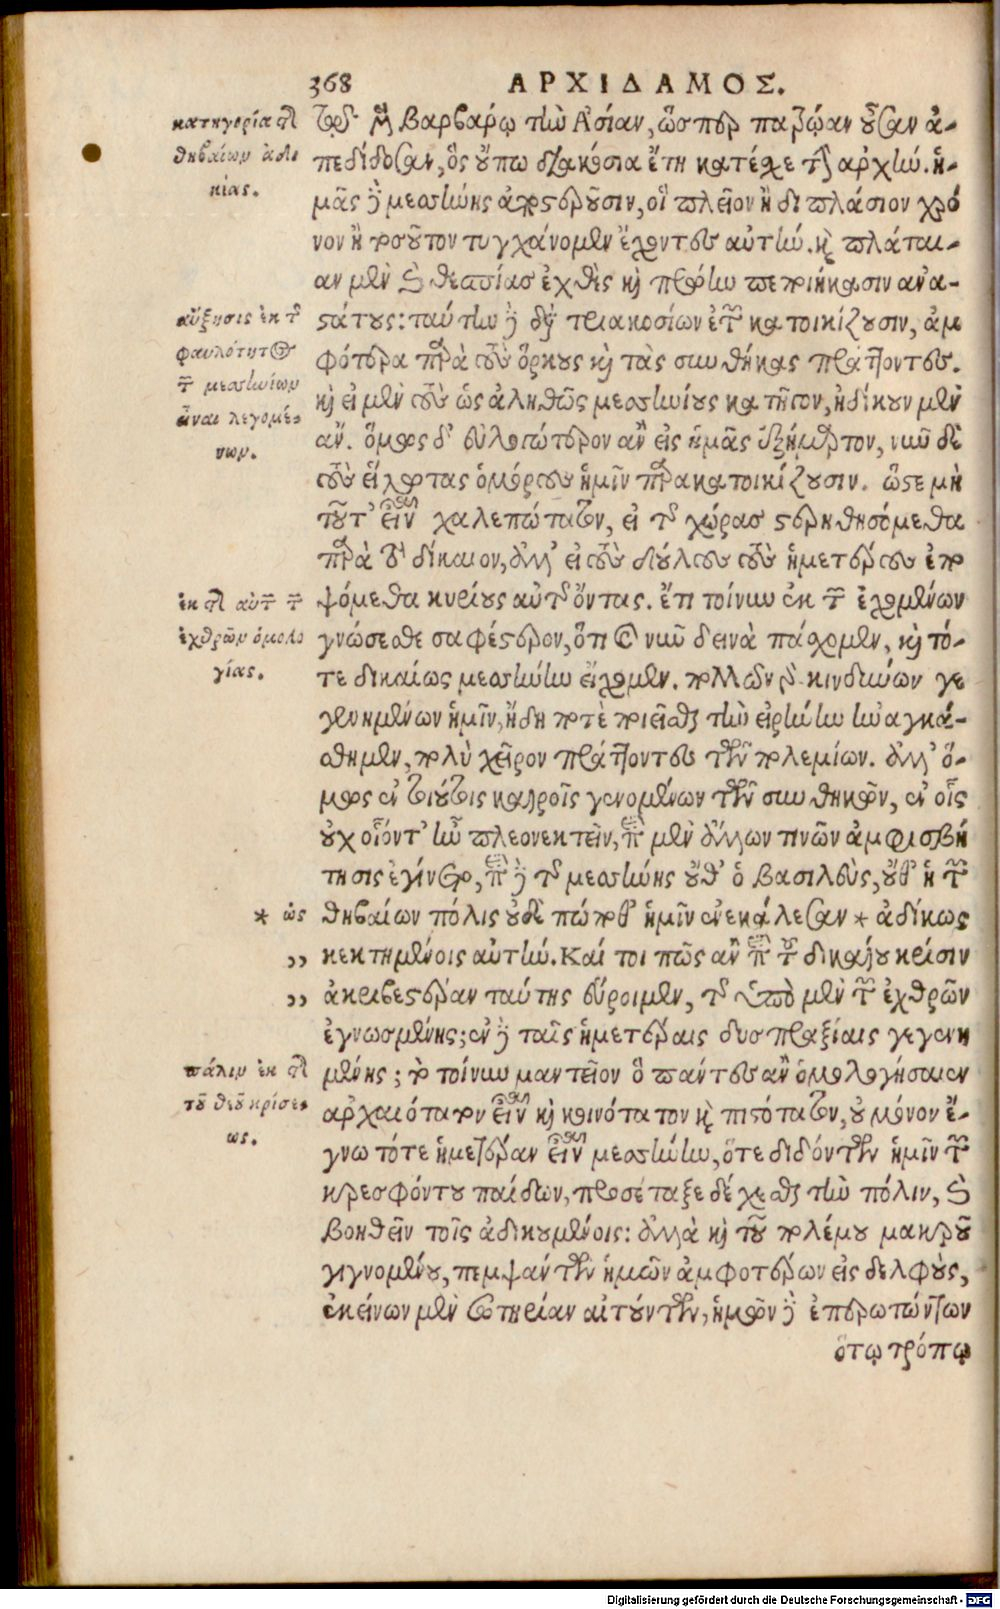 368 ΑΡΧΙΔΑΜΟΣ.
τες· τῷ βαρβάρῳ τὴν Ἀσίαν, ὥσπερ πατρῴαν οὖσαν ἀ-
πεδίδοσαν, ὃς οὔπω διακόσια ἔτη κατέσχε τὴν ἀρχήν. ἡ-
μᾶς δὲ μεσσήνης ἀποστεροῦσιν, οἳ πλεῖον ἢ διπλάσιον χρό
νον ἢ τοσοῦτον τυγχάνομεν ἔχοντες αὐτήν. καὶ πλάται-
αν μὲν καὶ θεσπίας ἐχθὲς καὶ πρώην πεποιήκασιν ἀνα-
στάτους: ταύτην δὲ διὰ τριακοσίων ἐτῶν κατοικίζουσιν, ἀμ
φότερα παρὰ τοὺς ὅρκους καὶ τὰς συνθήκας πράττοντες.
καὶ εἰ μὲν τοὺς ὡς ἀληθῶς μεσσηνίους κατῆγον, ἠδίκουν μὲν
ἄν. ὅμως δ' εὐλογώτερον ἂν εἰς ἡμᾶς ἐξήμαρτον, νῦν δὲ
τοὺς εἵλωτας ὁμόρους ἡμῖν παρακατοικίζουσιν. ὥστε μὴ
τοῦτ' εἶναι χαλεπώτατον, εἰ τῆς χώρας στερηθησόμεθα
παρὰ τὸ δίκαιον, ἀλλ' εἰ τοὺς δούλους τοὺς ἡμετέρους ἐπο
ψόμεθα κυρίους αὐτῆς ὄντας. ἔτι τοίνυν ἐκ τῶν ἐχομένων
γνώσεσθε σαφέστερον, ὅτι καὶ νῦν δεινὰ πάσχομεν, καὶ τό-
τε δικαίως μεσσήνην εἴχομεν. πολλῶν γὰρ κινδύνων γε
γενημένων ἡμῖν, ἤδη ποτὲ ποιεῖσθαι τὴν εἰρήνην ἠναγκά-
σθημεν, πολὺ χεῖρον πράττοντες τῶν πολεμίων. ἀλλ' ὅ-
μως ἐν τούτοις καιροῖς γενομένων τῶν συνθηκῶν, ἐν οἷς
οὐχ οἷόντ' ἦν πλεονεκτεῖν, περὶ μὲν ἄλλων τινῶν ἀμφισβή
τησις ἐγίνετο, περὶ δὲ τῆς μεσσήνης οὔθ' ὁ βασιλεὺς, οὔθ' ἡ τῶν
θηβαίων πόλις οὐδὲ πώποθ' ἡμῖν ἐνεκάλεσαν * ἀδίκως
κεκτημένοις αὐτήν. Καί τοι πῶς ἂν περὶ τοῦ δικαίου κρίσιν
ἀκριβεστέραν ταύτης εὕροιμεν, τῆς ὑπὸ μὲν τῶν ἐχθρῶν
ἐγνωσμένης; ἐν δὲ ταῖς ἡμετέραις δυσπραξίαις γεγενη
μένης; τὸ τοίνυν μαντεῖον ὃ πάντες ἂν ὁμολογήσαιεν
ἀρχαιότατον εἶναι καὶ κοινότατον καὶ πιστότατον, οὐ μόνον ἔ-
γνω τότε ἡμετέραν εἶναι μεσσήνην, ὅτε διδόντων ἡμῖν τῶν
κρεσφόντου παίδων, προσέταξε δέχεσθαι τὴν πόλιν, καὶ
βοηθεῖν τοῖς ἀδικουμένοις: ἀλλὰ καὶ τοῦ πολέμου μακροῦ
γιγνομένου, πεμψάντων ἡμῶν ἀμφοτέρων εἰς δελφούς,
ἐκείνων μὲν σωτηρίαν αἰτούντων, ἡμῶν δὲ ἐπερωτώντων
ὅτῳ τρόπῳ
κατηγορία τῆς
θηβαίων ἀδι
κίας.
αὔξησις ἐκ τῆς
φαυλότητος
τῶν μεσσηνίων
εἶναι λεγομέ
νων.
ἐκ τῆς αὐτῶν τῶν
ἐχθρῶν ὁμολο
γίας.
* ὡς
,,
,,
πάλιν ἐκ τῆς
τοῦ θεοῦ κρίσε
ως.
Digitalisierung gefördert durch die Deutsche Forschungsgemeinschaft - DFG